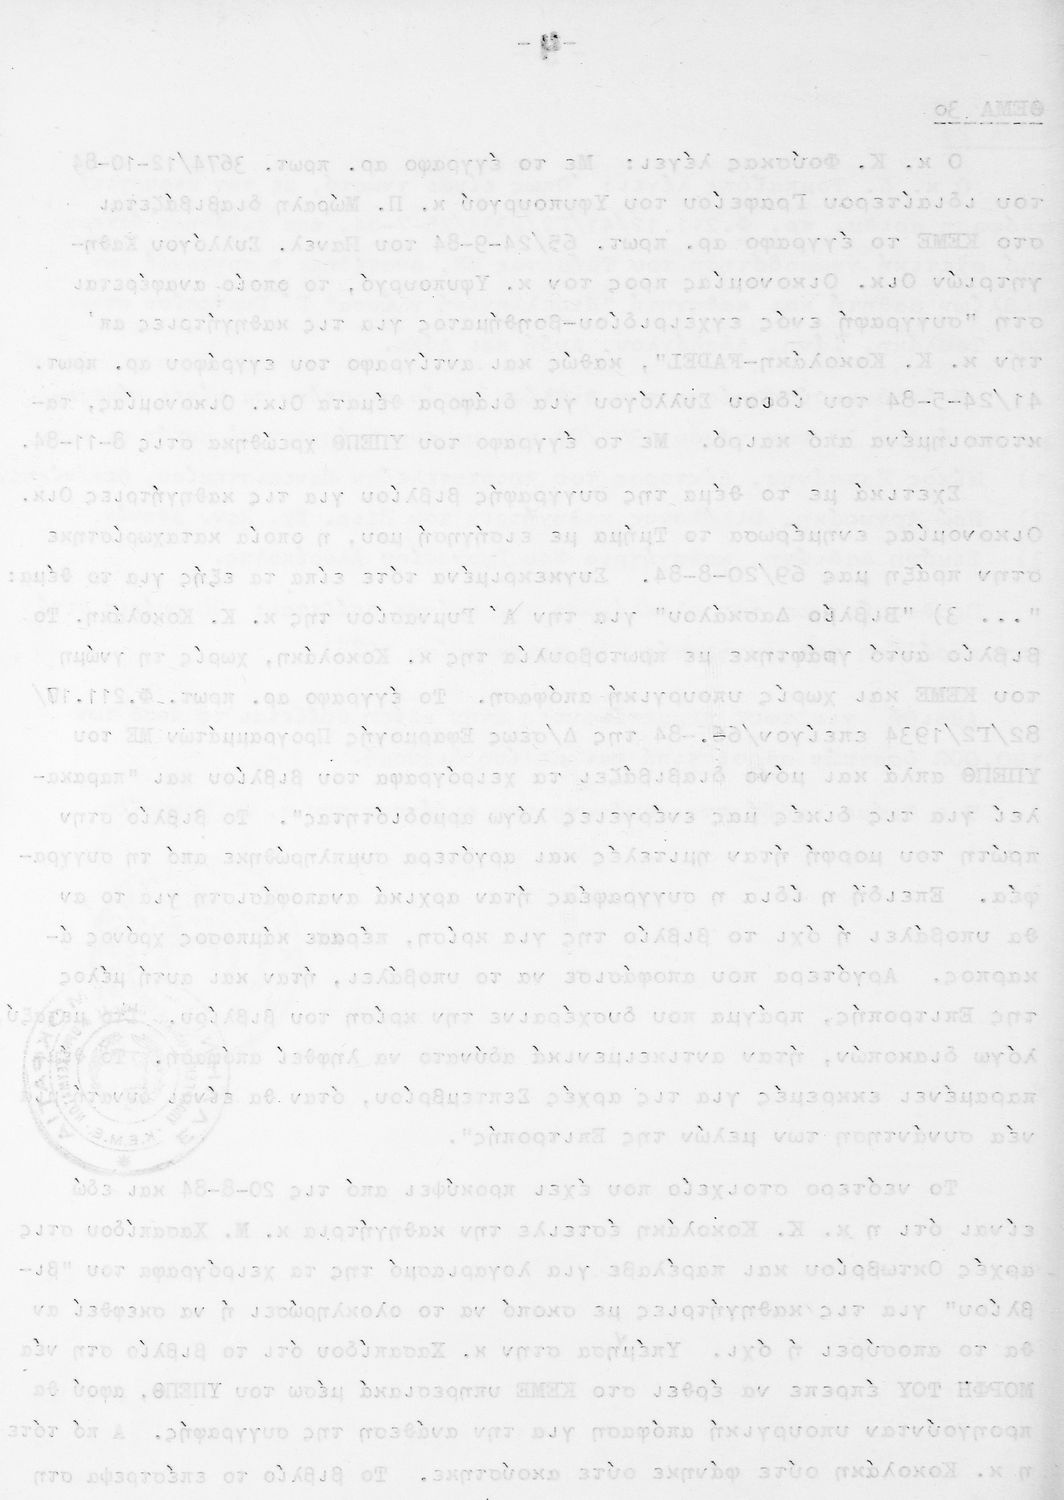 ΘΕΜΑ 3ο
Ο κ. Κ. Φούσκας λέγει: Με το έγγραφο αρ. πρωτ. 3674/12-10-84
του ιδιαίτερου Γραφείου του Υφυπουργού κ. Π. Μώραλη διαβιβάζεται
στο ΚΕΜΕ το έγγραφο αρ. πρωτ. 65/24-9-84 του Πανελ. Συλλόγου Καθη-
γητριών Οικ. Οικονομίας προς τον κ. Υφυπουργό, το οποίο αναφέρεται
στη "συγγραφή ενός εγχειριδίου-βοηθήματος για τις καθηγήτριες απ'
την κ. Κ. Κοκολάκη-FADEL", καθώς και αντίγραφο του εγγράφου αρ. πρωτ.
41/24-5-84 του ίδιου Συλλόγου για διάφορα θέματα Οικ. Οικονομίας, τα-
κτοποιημένα από καιρό. Με το έγγραφο του ΥΠΕΠΘ χρεώθηκα στις 8-11-84.
Σχετικά με το θέμα της συγγραφής βιβλίου για τις καθηγήτριες Οικ.
Οικονομίας ενημέρωσα το Τμήμα με εισήγησή μου, η οποία καταχωρίστηκε
στην πράξη μας 69/20-8-84. Συγκεκριμένα τότε είπα τα εξής για το θέμα:
"... 3) "Βιβλίο Δασκάλου" για την Α΄ Γυμνασίου της κ. Κ. Κοκολάκη. Το
βιβλίο αυτό γράφτηκε με πρωτοβουλία της κ. Κοκολάκη, χωρίς τη γνώμη
του ΚΕΜΕ και χωρίς υπουργική απόφαση. Το έγγραφο αρ. πρωτ. Φ.211.17/
82/Γ2/1934 επείγον/64.-84 της Δ/σεως Εφαρμογής Προγραμμάτων ΜΕ του
ΥΠΕΠΘ απλά και μόνο διαβιβάζει τα χειρόγραφα του βιβλίου και "παρακα-
λεί για τις δικές μας ενέργειες λόγω αρμοδιότητας". Το βιβλίο στην
πρώτη του μορφή ήταν ημιτελές και αργότερα συμπληρώθηκε από τη συγγρα-
φέα. Επειδή η ίδια η συγγραφέας ήταν αρχικά αναποφάσιστη για το αν
θα υποβάλει ή όχι το βιβλίο της για κρίση, πέρασε κάμποσος χρόνος ά-
καρπος. Αργότερα που αποφάσισε να το υποβάλει, ήταν και αυτή μέλος
της Επιτροπής, πράγμα που δυσχέραινε την κρίση του βιβλίου. Στο μεταξύ
λόγω διακοπών, ήταν αντικειμενικά αδύνατο να ληφθεί απόφαση. Το θέμα
παραμένει εκκρεμές για τις αρχές Σεπτεμβρίου, όταν θα είναι δυνατή μια
νέα συνάντηση των μελών της Επιτροπής".
Το νεότερο στοιχείο που έχει προκύψει από τις 20-8-84 και εδώ
είναι ότι η κ. Κ. Κοκολάκη έστειλε την καθηγήτρια κ. Μ. Χασαπίδου στις
αρχές Οκτωβρίου και παρέλαβε για λογαριασμό της τα χειρόγραφα του "βι-
βλίου" για τις καθηγήτριες με σκοπό να το ολοκληρώσει ή να σκεφθεί αν
θα το αποσύρει ή όχι. Υπέμνησα στην κ. Χασαπίδου ότι το βιβλίο στη νέα
ΜΟΡΦΗ ΤΟΥ έπρεπε να έρθει στο ΚΕΜΕ υπηρεσιακά μέσω του ΥΠΕΠΘ, αφού θα
προηγούνταν υπουργική απόφαση για την ανάθεση της συγγραφής. Α πό τότε
η κ. Κοκολάκη ούτε φάνηκε ούτε ακούστηκε. Το βιβλίο το επέστρεψα στη
Κ.Ε.Μ.Ε.